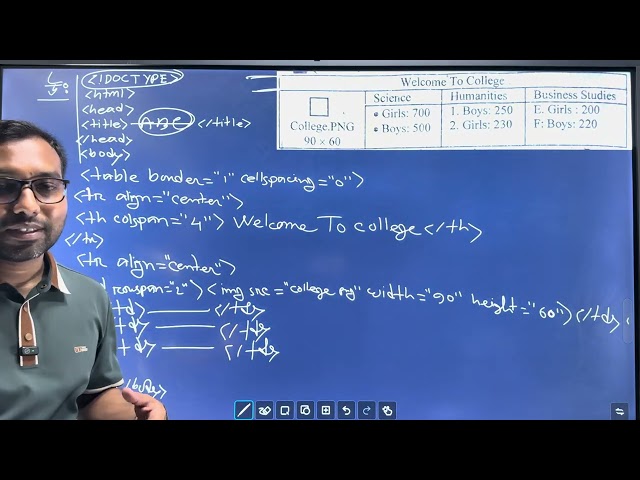 Welcome To College
Science
Humanities
Business Studies
Girls: 700
1. Boys: 250
E. Girls : 200
College.PNG
Boys: 500
2. Girls: 230
F: Boys: 220
90 × 60
<!DOCTYPE>
<html>
<head>
<title> ABC </title>
</head>
<body>
<table border="1" cellspacing="0">
<tr align="center">
<th colspan="4"> Welcome To college </th>
</tr>
<tr align="center">
rowspan="2"> <img src="college.png" width="90" height="60"> </td>
td> </td>
td> </td>
td> </td>
</body>